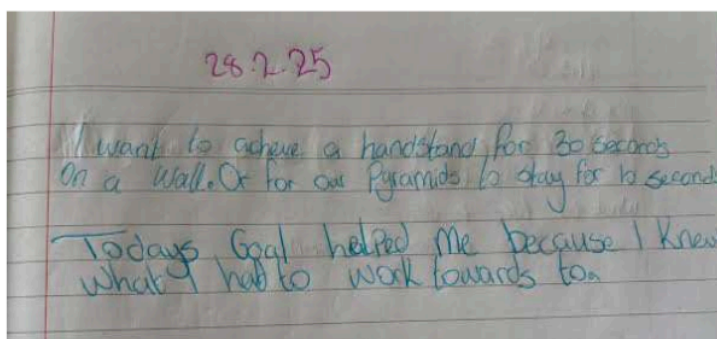 28.2.25
I want to acheve a handstand for 30 seconds
On a Wall. Or for our Pyramids to stay for 10 seconds
Todays Goal helped Me because I Knew
what I had to work towards to.